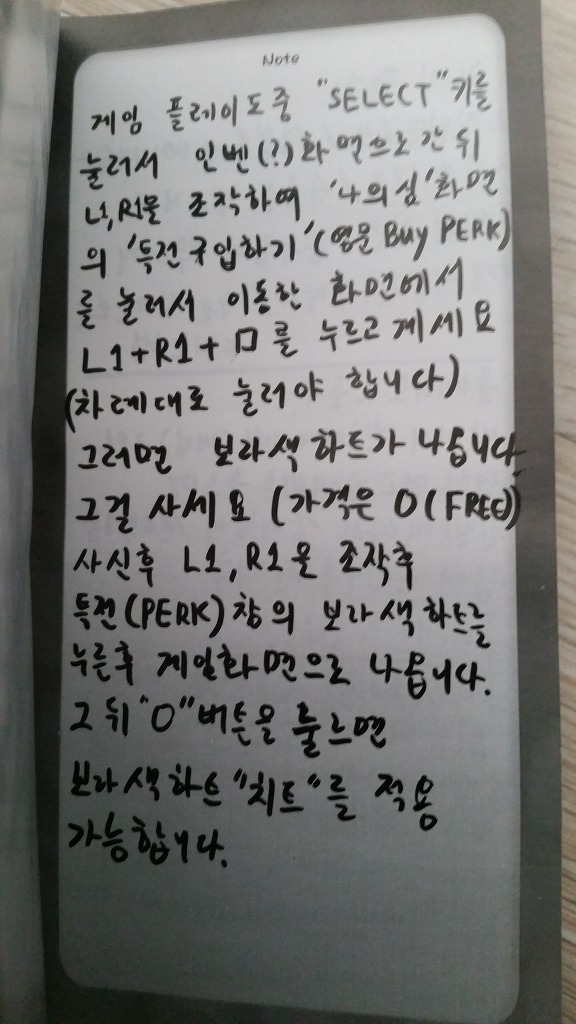 Note
게임 플레이도중 "SELECT"키를
눌러서 인벤(?)화면으로 간 뒤
L1, R1을 조작하여 '나의심'화면
의 '특전구입하기'(영문 Buy PERK)
를 눌러서 이동한 화면에서
L1+R1+□를 누르고 계세요
(차례대로 눌러야 합니다)
그러면 보라색하트가 나옵니다
그걸 사세요 (가격은 0(FREE))
사신후 L1, R1을 조작후
특전(PERK)창의 보라색하트를
누른후 게임화면으로 나옵니다.
그 뒤 "O"버튼을 눌르면
보라색하트"치트"를 적용
가능합니다.